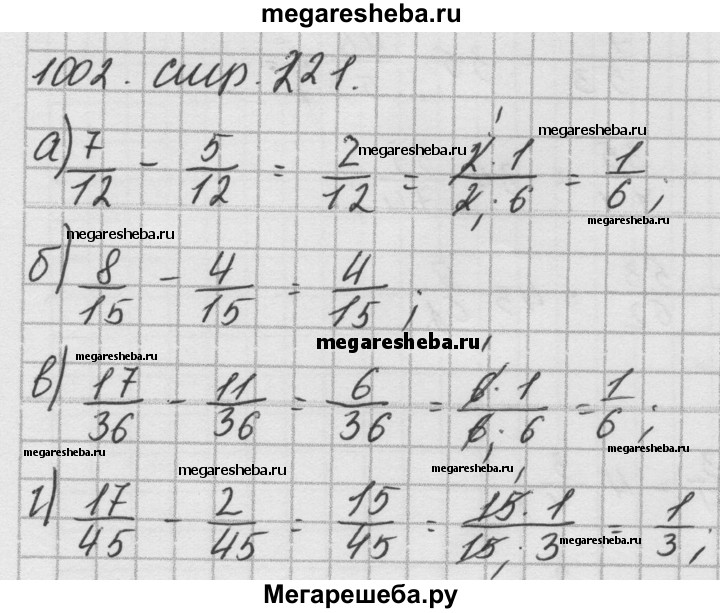 megaresheba.ru
1002. стр. 221.
megaresheba.ru
а) 7/12 - 5/12 = 2/12 = 2·1/2·6 = 1/6;
megaresheba.ru megaresheba.ru
megaresheba.ru
б) 8/15 - 4/15 = 4/15;
megaresheba.ru
megaresheba.ru
в) 17/36 - 11/36 = 6/36 = 6·1/6·6 = 1/6;
megaresheba.ru megaresheba.ru megaresheba.ru megaresheba.ru
г) 17/45 - 2/45 = 15/45 = 15·1/15·3 = 1/3;
megaresheba.ru
Мегарешеба.ру